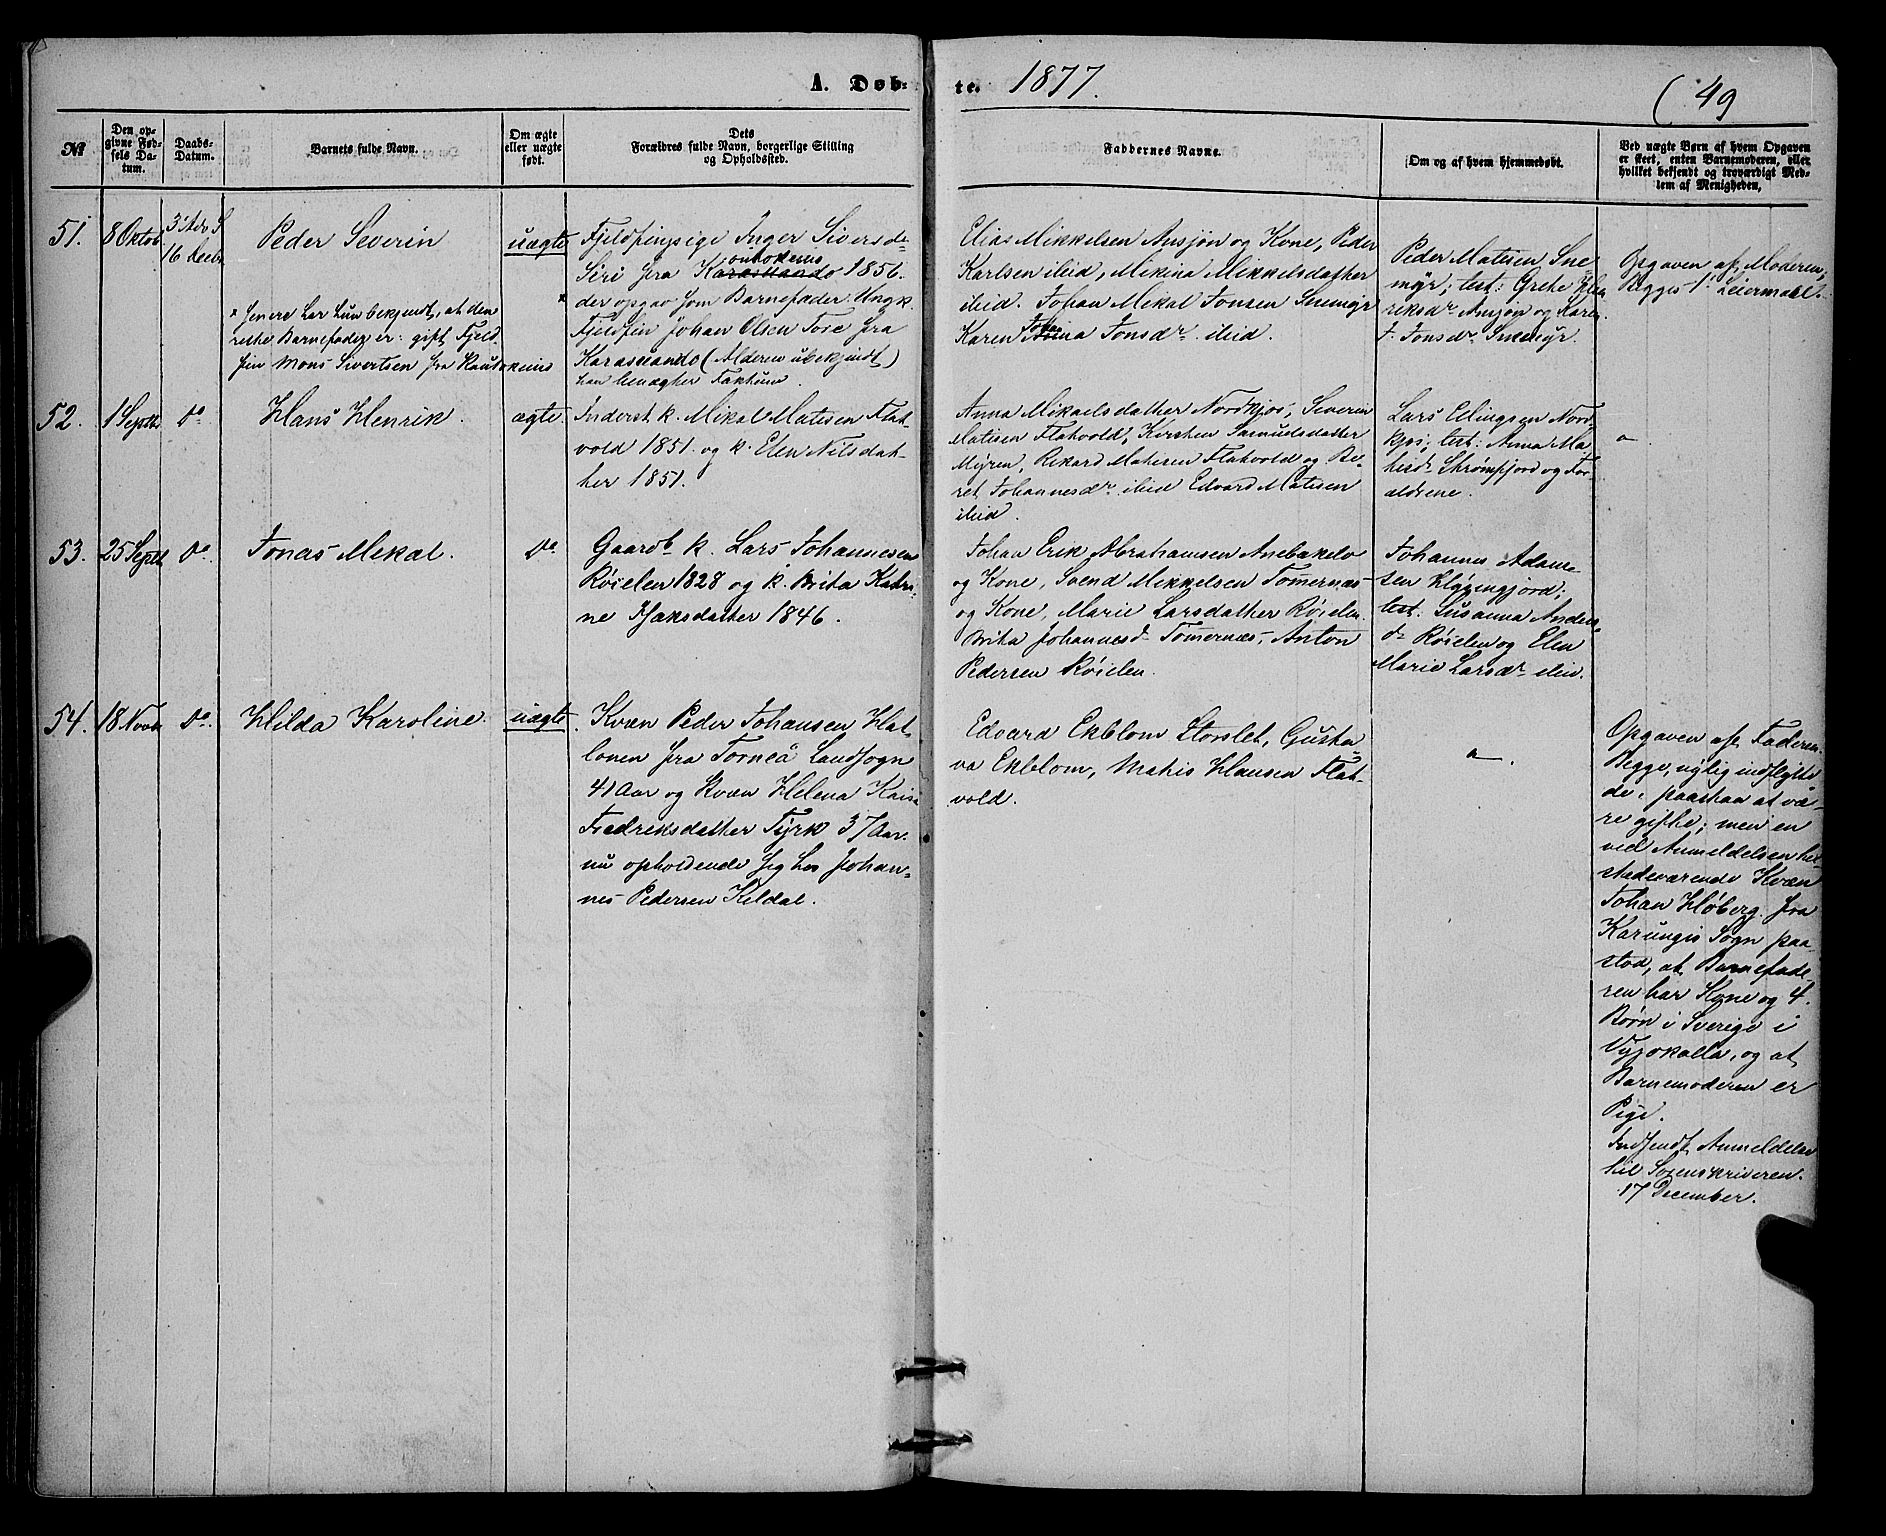 A. Døb-
te. 1877.
( 49
№
Den op-
givne Fød-
sels Da-
tum.
Daabs-
Datum.
Barnets fulde Navn.
Om ægte
eller uægte
født.
Dets
Forældres fulde Navn, borgerlige Stilling
og Opholdssted.
Faddernes Navne.
Om og af hvem hjemmedøbt.
Ved uægte Børn af hvem Opgaven
er skeet, enten Barnemoderen, eller
hvilket bekjendt og troværdigt Med-
lem af Menigheden.
51.
8 Oktob
3' Adv S
16 Decbr
Peder Severin
× senere har hun bekjendt, at den
rette Barnefader er: gift Fjeld
fin Mons Sivertsen fra Kautokeino
uægte
Fjeldfinpige Inger Siversda-
Siri fra Karasuando 1856.
× der opgav som Barnefader: Ungk.
Fjeldfin Johan Olsen Tore fra
Karasuando (Alderen ubekjendt)
han benægter Faktum.
Elias Mikkelsen Ansjøn og Kone, Peder
Karlsen ibid, Mikina Mikkelsdatter
ibid. Johan Mikal Jonsen Snemyr
Karen Anna Jonsdr. ibid.
Peder Matisen Sne-
myr; test: Grethe
riksdr Ansjøn og Karen
Jonsdr. Snemyr.
Opgaven af Moderen;
Begges 1' Leiermaal.
52.
1 Septbr
Do
Hans Henrik.
ægte.
Inderst k. Mikal Matisen Flat-
vold 1851. og k. Elen Nilsdat-
ter 1851.
Anna Mikaelsdatter Nordkjos, Severin
Matisen Flatvold, Kirsten Samuelsdatter
Myren, Rikard Matisen Flatvold og Be-
ret Johannesdr. ibid Edvard Matisen
ibid.
Lars Ellingsen Nord-
kjos; test: Anna Ma-
thisdr Strømfjord og For-
ældrene.
53.
25 Septb
Do.
Jonas Mekal.
Do
Gaardb. k. Lars Johannesen
Røielen 1828 og k. Brita Kathri-
ne Isaksdatter 1846.
Johan Erik Abrahamsen Anebakelv
og Kone, Svend Mikkelsen Tømernæs-
og Kone, Marie Larsdatter Røielen.
Brita Johannesd. Tømernæs, Anton
Pedersen Røielen.
Johannes Adam-
sen
test. Susanna Anders-
dr Røielen og Elen
Marie Larsdr ibid.
54.
18 Novb
Do.
Hilda Karoline.
uægte.
Kvæn Peder Johansen Hat-
lonen fra Torneå Landsogn
41 Aar og Kvæn Helena Kaisa
Fredriksdatter Tyrk 37 Aar.
nu opholdende sig hos Johan-
nes Pedersen Kildal.
Edvard Ekblom Storslet, Gusta-
va Ekblom, Mathis Hansen Flat-
vold.
Opgaven af Faderen.
Begge, nylig indflytte-
de, paastaa at væ-
re gifte; men en
ved Anmeldelsen til-
stedeværende Kvæn
Johan Høberg fra
Karungis Sogn paa-
stod, at Barnefade-
ren har Kone og 4.
Børn i Sverige i
og at
Barnemoderen er
Pige.
Indsendt Anmeldelse
til Sorenskriveren.
17 December.